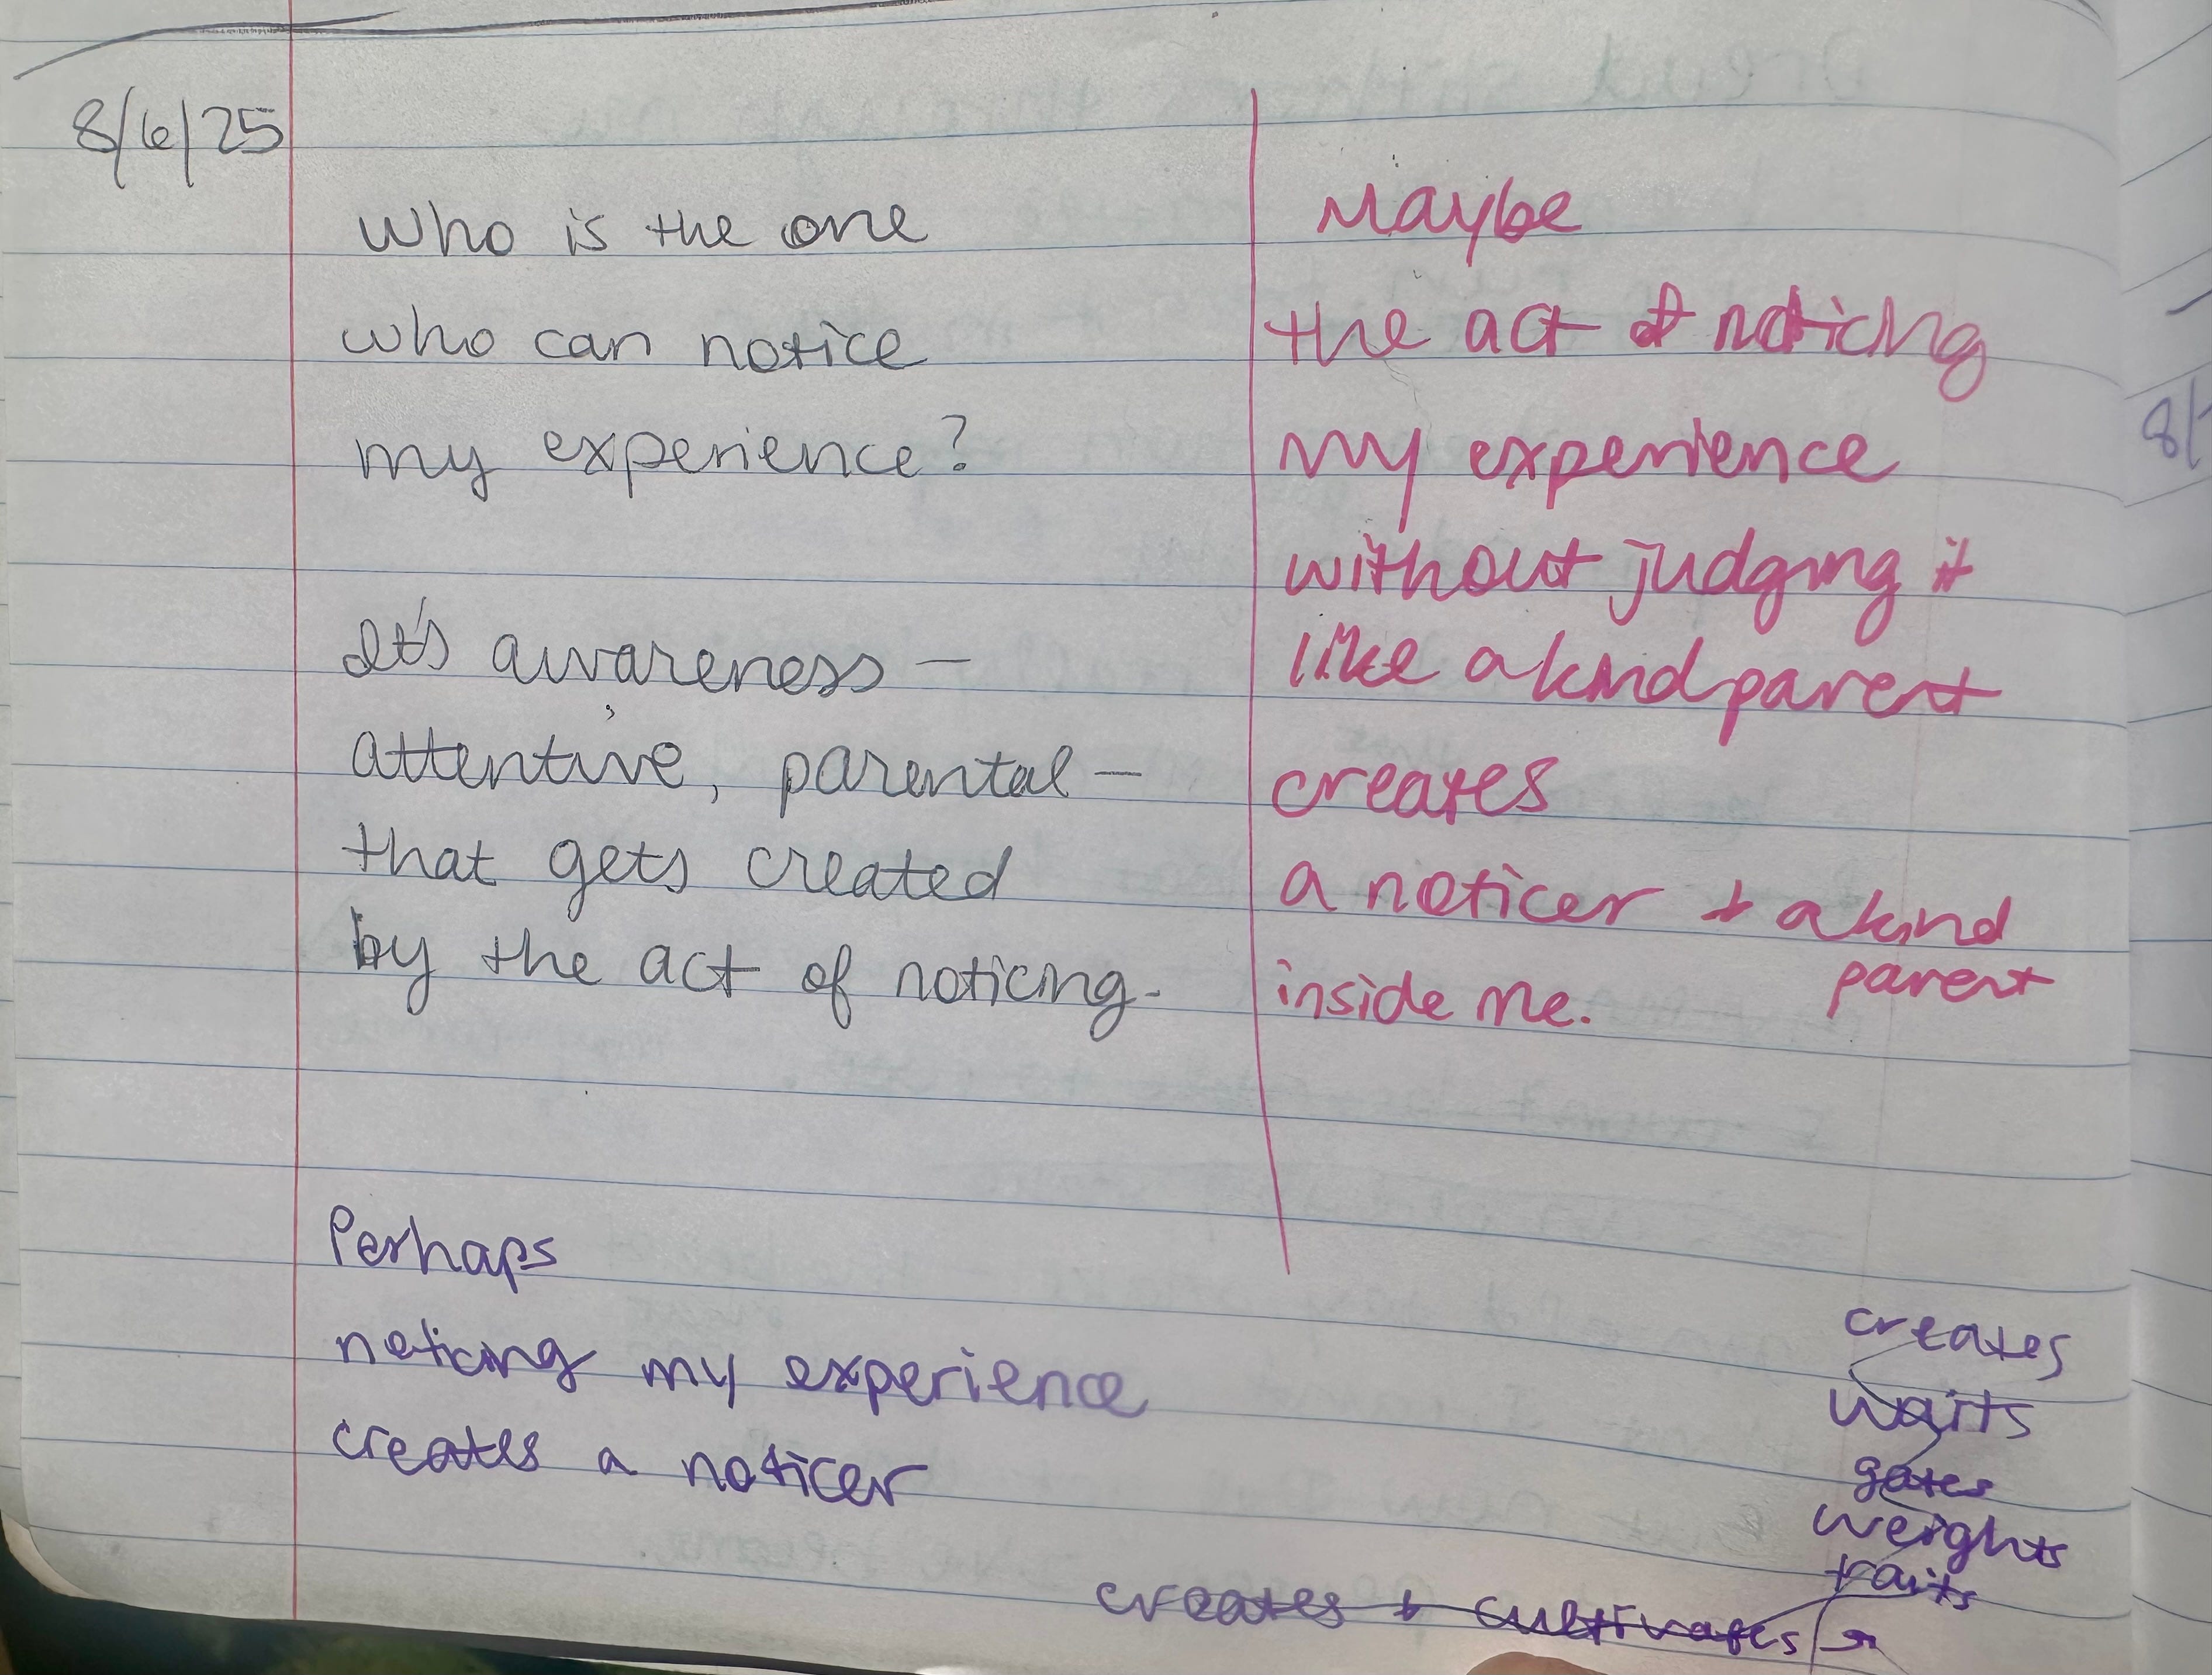 8/6/25
Who is the one
who can notice
my experience?
It's awareness —
attentive, parental —
that gets created
by the act of noticing.
Maybe
the act of noticing
my experience
without judging it
like a kind parent
creates
a noticer + a kind
parent
inside me.
Perhaps
noticing my experience
creates a noticer
creates
waits
gates
weights
traits
creates + cultivates
8/